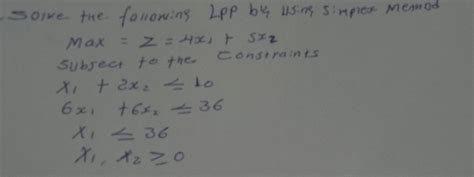 Solve the following LPP by using simplex Method
Max = Z = 4x₁ + 5x₂
Subject to the Constraints
x₁ + 2x₂ ≤ 10
6x₁ + 6x₂ ≤ 36
x₁ ≤ 36
x₁, x₂ ≥ 0